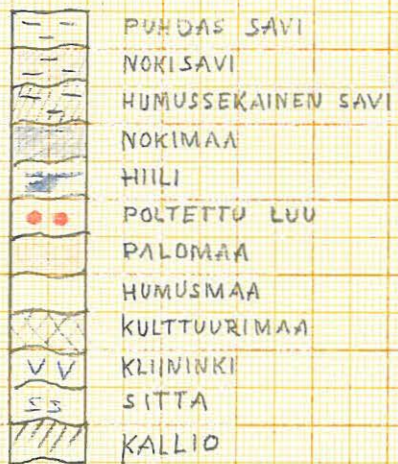 PUHDAS SAVI
NOKISAVI
HUMUSSEKAINEN SAVI
NOKIMAA
HIILI
POLTETTU LUU
PALOMAA
HUMUSMAA
KULTTUURIMAA
KLIININKI
SITTA
KALLIO